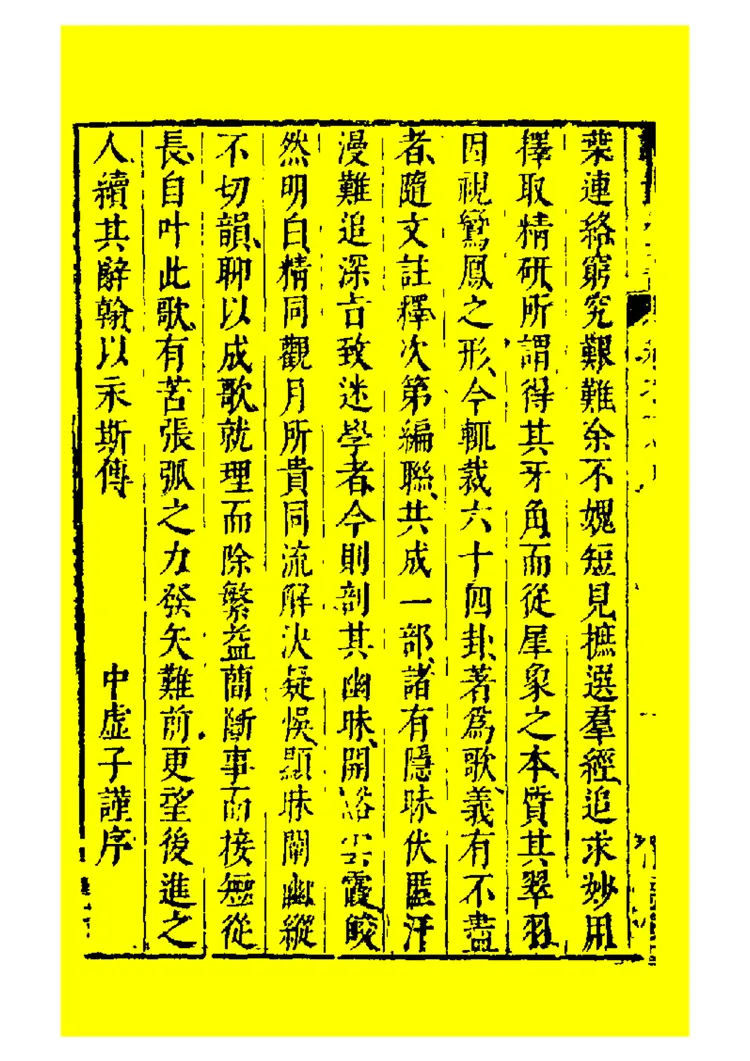 葉連絡窮究艱難余不媿短見摭選羣經追求妙用
擇取精研所謂得其牙角而從犀象之本質其翠羽
因視鸞鳳之形今輒裁六十四卦著爲歌義有不盡
者隨文註釋次第編聯共成一部諸有隱昧伏匿汗
漫難追深言致迷學者今則剖其幽昧開豁雲霞皎
然明白精同觀月所貴同流解决疑悞顯昧闡幽縱
不切韻聊以成歌就理而除繁蓋簡斷事而接短從
長自叶此歌有苦張弧之力發矢難前更望後進之
人續其辭翰以永斯傳
中虛子謹序